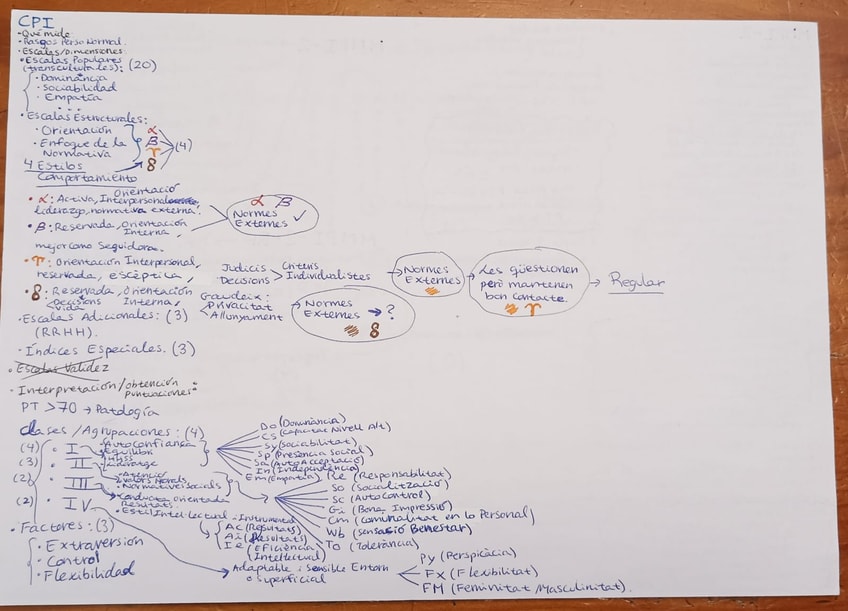 CPI
• Qué mide
• Rasgos Perso Normal.
• Escalas/Dimensiones
• Escalas Populares
(transculturales): (20)
• Dominancia
• Sociabilidad
• Empatía
...
• Escalas Estructurales:
• Orientación
• Enfoque de la
Normativa
α
β
γ
8
(4)
4 Estilos
Comportamiento
Orientació
• α: Activa, Interpersonal
liderazgo, normativa externa.
• β: Reservada, Orientación
Interna,
mejor como Seguidora.
α β
Normes
Externes ✓
• γ: Orientación Interpersonal,
reservada, escèptica,
Judicis
Decisions > Criteris
Individualistes
→ Normes
Externes
→ Les qüestionen
però mantenen
bon contacte.
γ
→ Regular
• 8: Reservada, Orientación
Decisions Interna,
Vida
Gaudeix:
Privacitat
Allunyament
Normes
Externes → ?
8
• Escalas Adicionales: (3)
(RRHH).
• Índices Especiales. (3)
• Escalas Validez
• Interpretación/obtención
puntuaciones:
PT > 70 → Patología
Clases/Agrupaciones: (4)
(4) • I - Autoconfiança
Equilibri
(3) • II
Lideratge
(2) • III - Atenció
Valors Morals
• Normatives socials
(2) • IV → Conducta orientada
Resultats.
• Estil Intel·lectual i Instrumental
Do (Dominància)
Cs (Capacitat Nivell Alt)
Sy (Sociabilitat)
Sp (Presència Social)
Sa (Auto Acceptació)
In (Independència)
Em (Empatia)
Re (Responsabilitat)
So (Socialització)
Sc (Autocontrol)
Gi (Bona Impressió)
Cm (Comunalitat en lo Personal)
Wb (Sensació Benestar)
To (Tolerància)
Ac (Resultats)
Ai (Resultats)
Ie (Eficiència
Intellectual)
• Factores: (3)
• Extraversión
• Control
• Flexibilidad
Adaptable i Sensible Entorn
o superficial
Py (Perspicàcia)
Fx (Flexibilitat)
FM (Feminitat/Masculinitat).